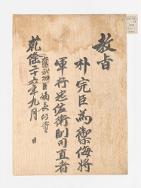 敎旨
朴完臣爲禦侮將
軍行忠佐衛副司直者
乾隆二十五年九月 日